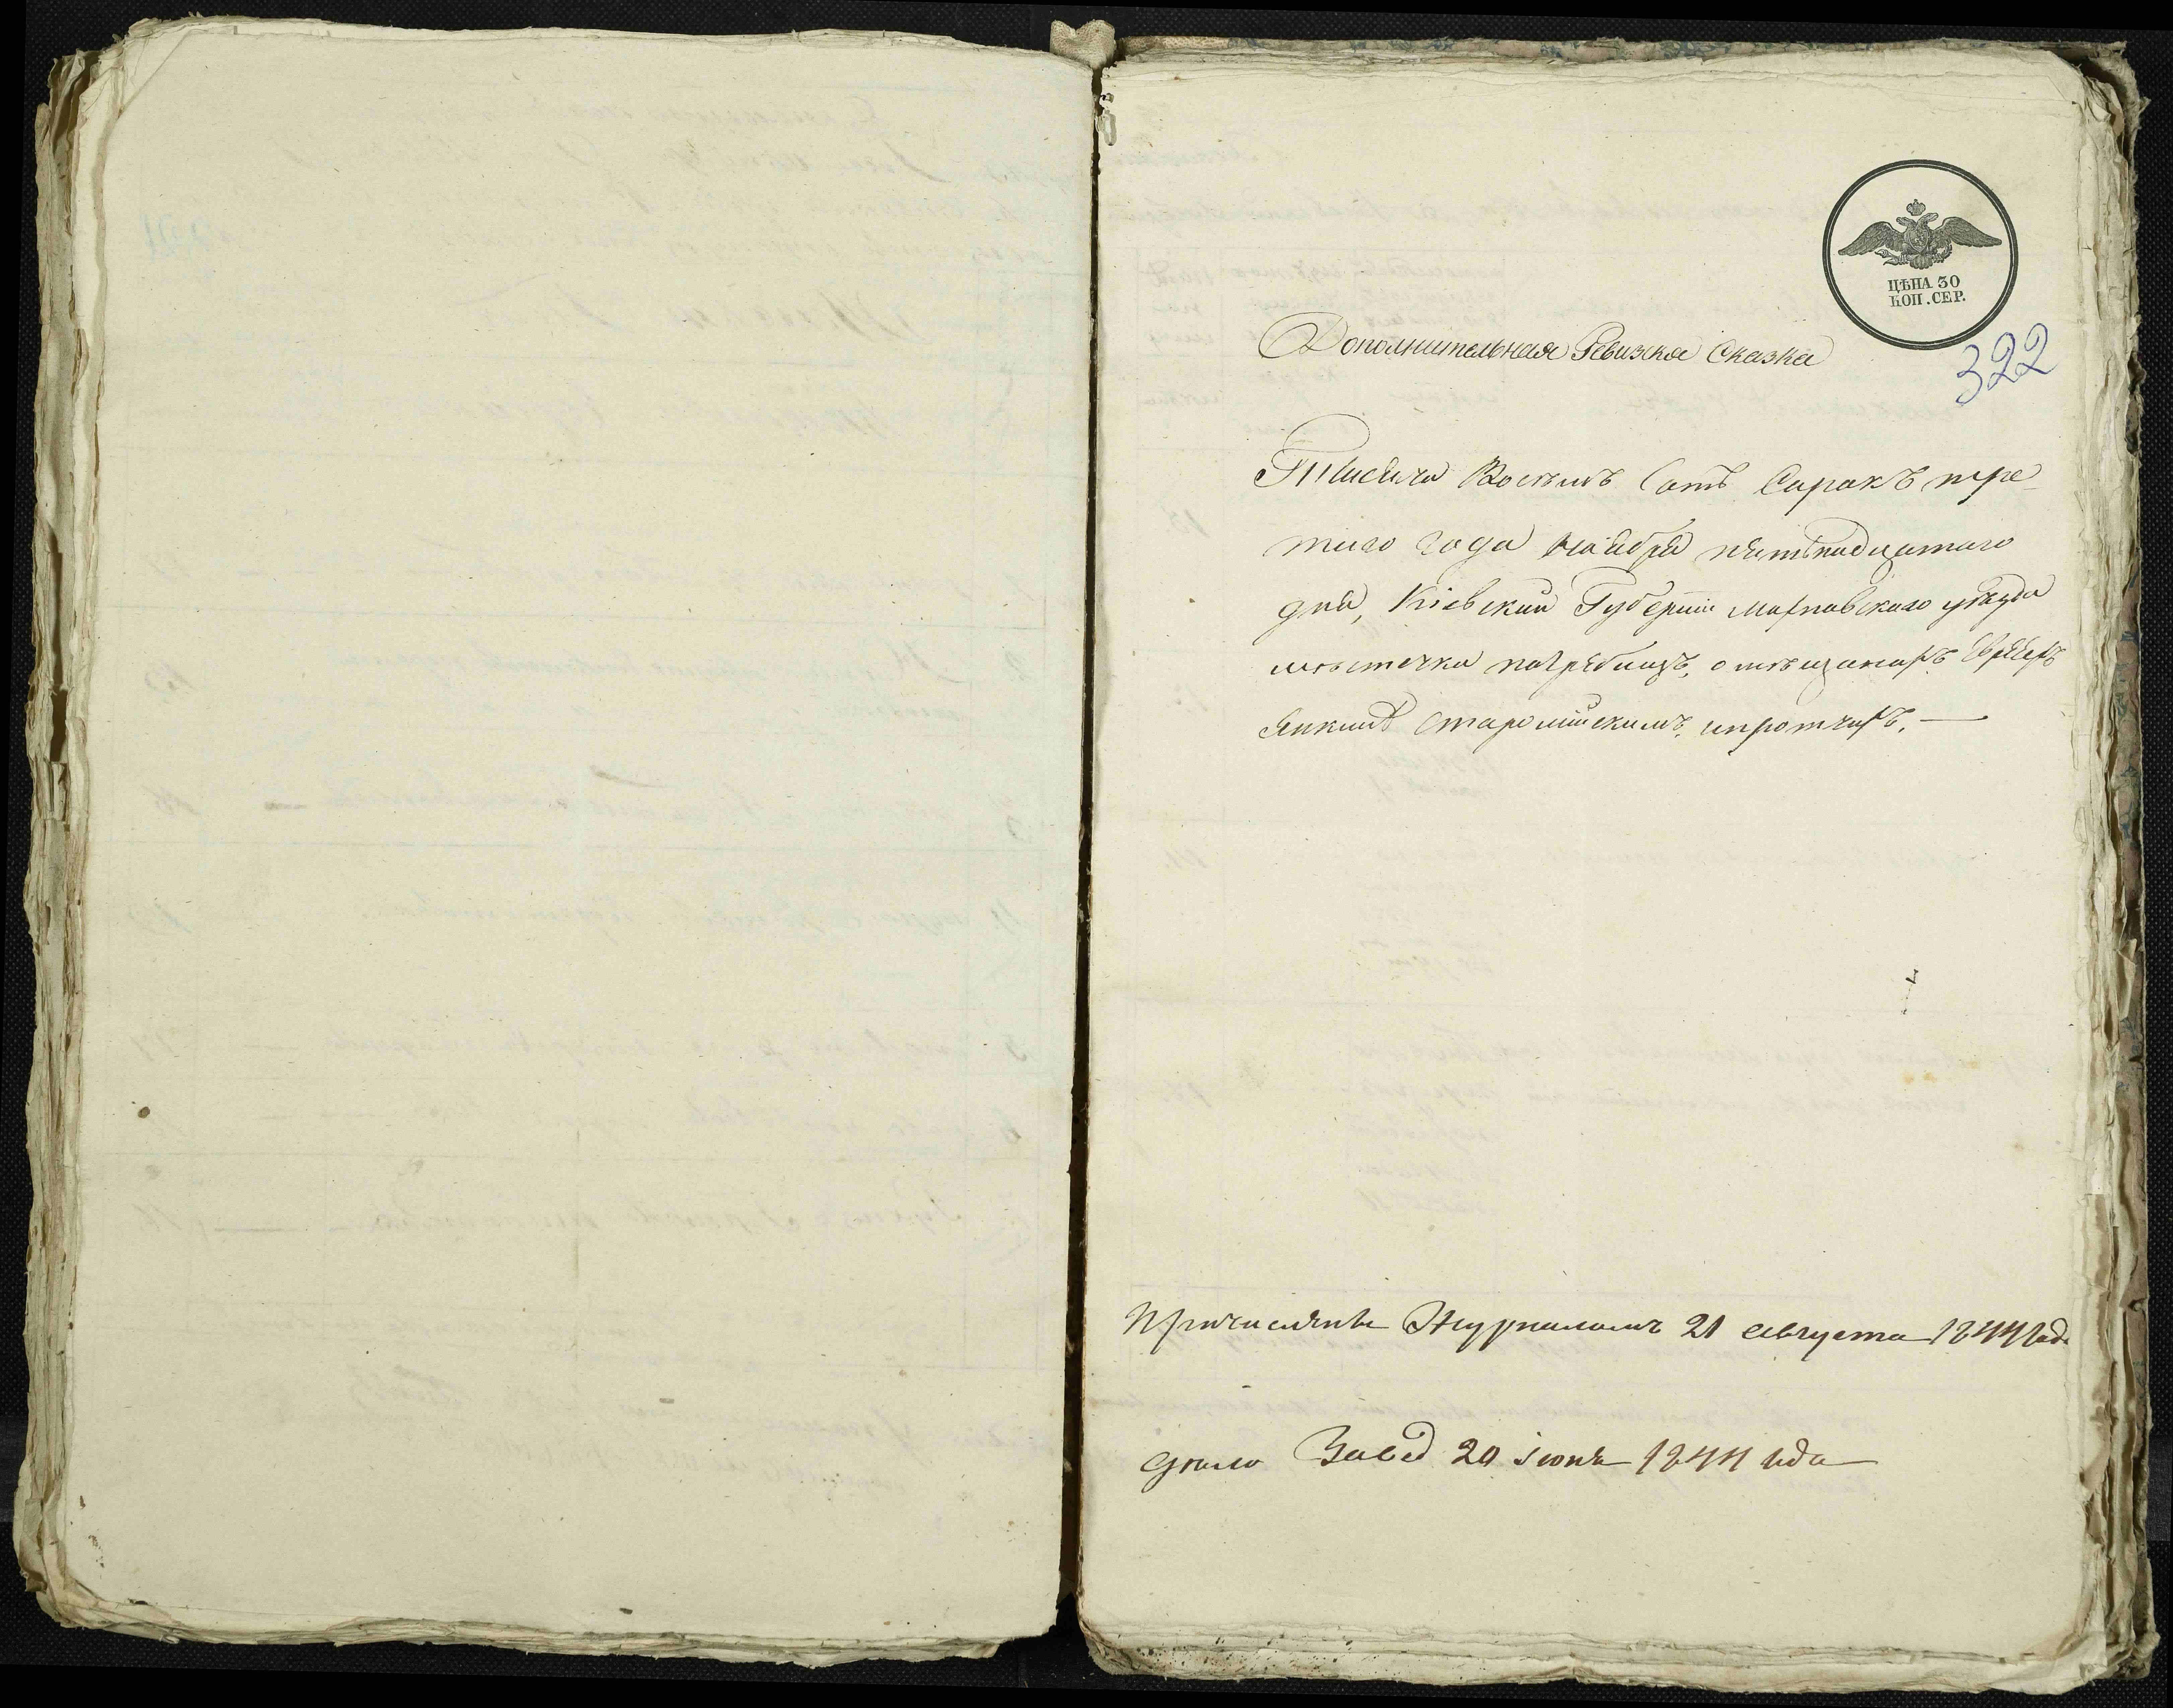 ЦѢНА 30
КОП. СЕР.
322
Дополнительная Ревизска Сказка
Тисяча Восемъ Сотъ Сорокъ тре-
тего года Ноября пятьнадцатаго
дня, Кіевской Губерніи Махновскаго уѣзда
мѣстечка Погребищъ, о мѣщанахъ Евреяхъ
Янкилѣ Старолійскимъ, и протчихъ. —
Причислены Журналомъ 21 августа 1844 года
дѣло Завед 20 іюня 1844 года